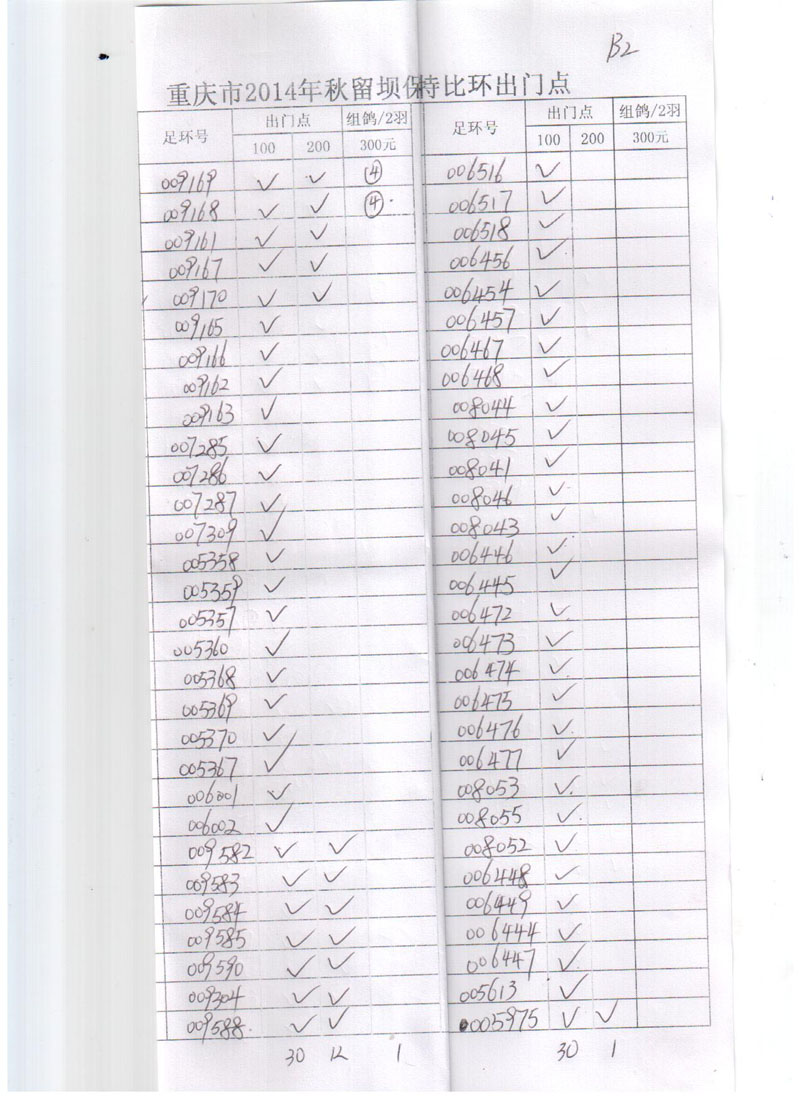 B2
重庆市2014年秋留坝保特比环出门点
足环号 出门点 组鸽/2羽 足环号 出门点 组鸽/2羽
100 200 300元 100 200 300元
009169 ✓ ✓ ④ 006516 ✓
009168 ✓ ✓ ④ 006517 ✓
009161 ✓ ✓ 006518 ✓
009167 ✓ ✓ 006456 ✓
009170 ✓ ✓ 006454 ✓
009165 ✓ 006457 ✓
009166 ✓ 006467 ✓
009162 ✓ 006468 ✓
009163 ✓ 008044 ✓
007285 ✓ 008045 ✓
007286 ✓ 008041 ✓
007287 ✓ 008046 ✓
007309 ✓ 008043 ✓
005358 ✓ 006446 ✓
005359 ✓ 006445 ✓
005357 ✓ 006472 ✓
005360 ✓ 006473 ✓
005368 ✓ 006474 ✓
005369 ✓ 006475 ✓
005370 ✓ 006476 ✓
005367 ✓ 006477 ✓
006001 ✓ 008053 ✓
006002 ✓ 008055 ✓
009582 ✓ ✓ 008052 ✓
009583 ✓ ✓ 006448 ✓
009584 ✓ ✓ 006449 ✓
009585 ✓ ✓ 006444 ✓
009590 ✓ ✓ 006447 ✓
009304 ✓ ✓ 005613 ✓
009588 ✓ ✓ 005975 ✓ ✓
30 12 1 30 1